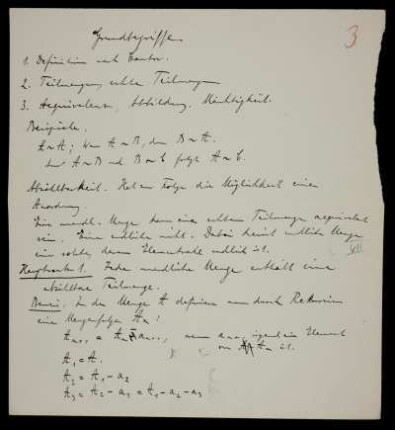 Grundbegriffe
3
1. Definition nach Cantor.
2. Teilmengen, echte Teilmengen
3. Aequivalenz, Abbildung, Mächtigkeit.
Beispiele.
A ~ A; wenn A ~ B, dann B ~ A.
aus A ~ B und B ~ C folgt A ~ C.
Abzählbarkeit. Hat zur Folge die Möglichkeit einer
Anordnung.
Eine unendl. Menge kann einer echten Teilmenge aequivalent
sein. Eine endliche nicht. Dabei heisst endliche Menge
eine solche, deren Elementzahl endlich ist.
Hauptsatz 1. Jede unendliche Menge enthält eine
abzählbare Teilmenge.
Beweis. In der Menge A definieren wir durch Rekursion
eine Mengenfolge Aₙ:
Aₙ₊₁ = Aₙ - aₙ₊₁, wenn aₙ₊₁ irgend ein Element
von Aₙ ist.
A₁ = A.
A₂ = A₁ - a₂
A₃ = A₂ - a₃ = A₁ - a₂ - a₃